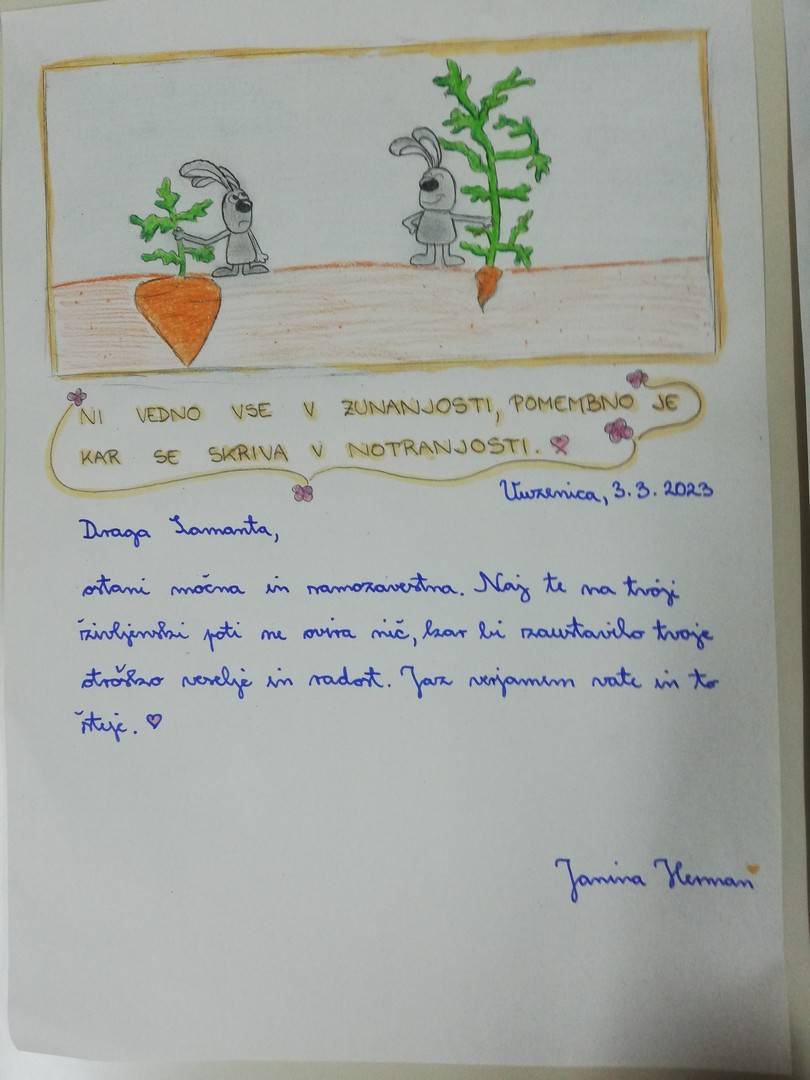 NI VEDNO VSE V ZUNANJOSTI, POMEMBNO JE
KAR SE SKRIVA V NOTRANJOSTI.
Vuzenica, 3.3.2023
Draga Samanta,
ostani močna in samozavestna. Naj te na tvoji
življenski poti ne ovira nič, kar bi zaustavilo tvoje
otroško veselje in radost. Jaz verjamem vate in to
šteje.
Janina Herman